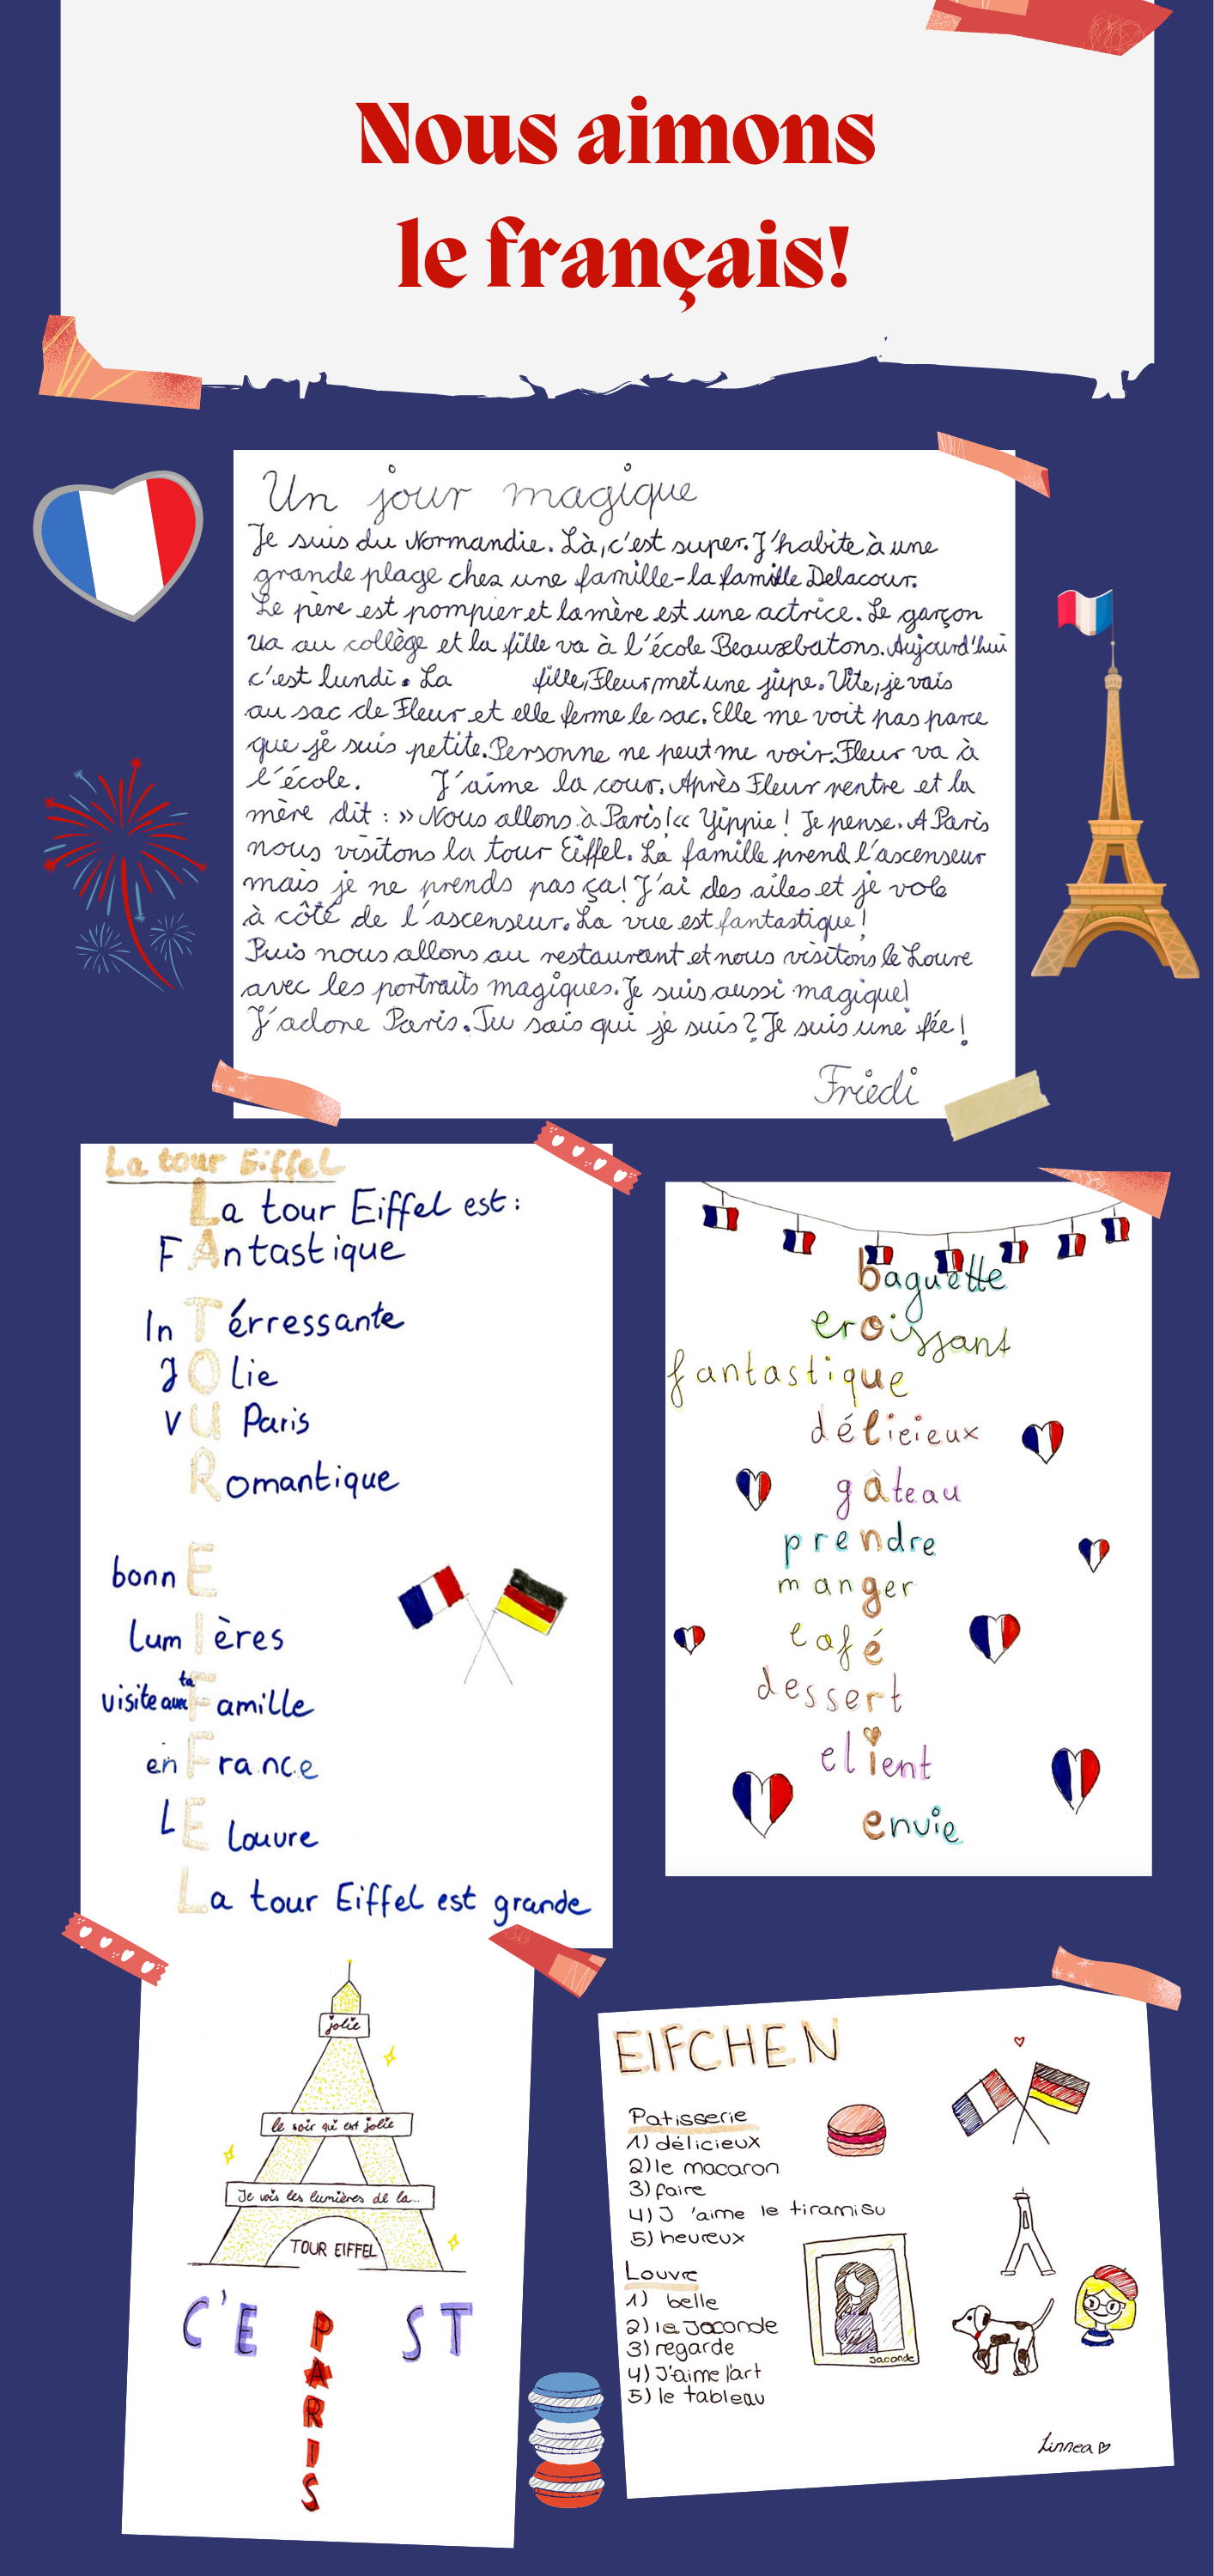 Nous aimons
le français!
Un jour magique
Je suis du Normandie. Là, c'est super. J'habite à une
grande plage chez une famille - la famille Delacour.
Le père est pompier et la mère est une actrice. Le garçon
va au collège et la fille va à l'école Beauxbatons. Aujourd'hui
c'est lundi. La fille, Fleur, met une jupe. Vite, je vais
au sac de Fleur et elle ferme le sac. Elle me voit pas parce
que je suis petite. Personne ne peut me voir. Fleur va à
l'école. J'aime la cour. Après Fleur rentre et la
mère dit : »Nous allons à Paris!« Yippie! Je pense. A Paris
nous visitons la tour Eiffel. La famille prend l'ascenseur
mais je ne prends pas ça! J'ai des ailes et je vole
à côté de l'ascenseur. La vue est fantastique!
Puis nous allons au restaurant et nous visitons le Loure
avec les portraits magiques. Je suis aussi magique!
J'adore Paris. Tu sais qui je suis? Je suis une fée!
Friedi
La tour Eiffel
La tour Eiffel est:
FAntastique
InTérressante
JOlie
vU Paris
Romantique
bonnE
lumIères
visite avec ta Famille
en France
LE Louvre
La tour Eiffel est grande
baguette
croissant
fantastique
délicieux
gâteau
prendre
manger
café
dessert
client
envie
jolie
le soir qui est jolie
Je vois les lumières de la...
TOUR EIFFEL
C'E ST
PARIS
EIFCHEN
Patisserie
1) délicieux
2) le macaron
3) faire
4) J'aime le tiramisu
5) heureux
Louvre
1) belle
2) la Joconde
3) regarde
4) J'aime l'art
5) le tableau
Jaconde
Linnea